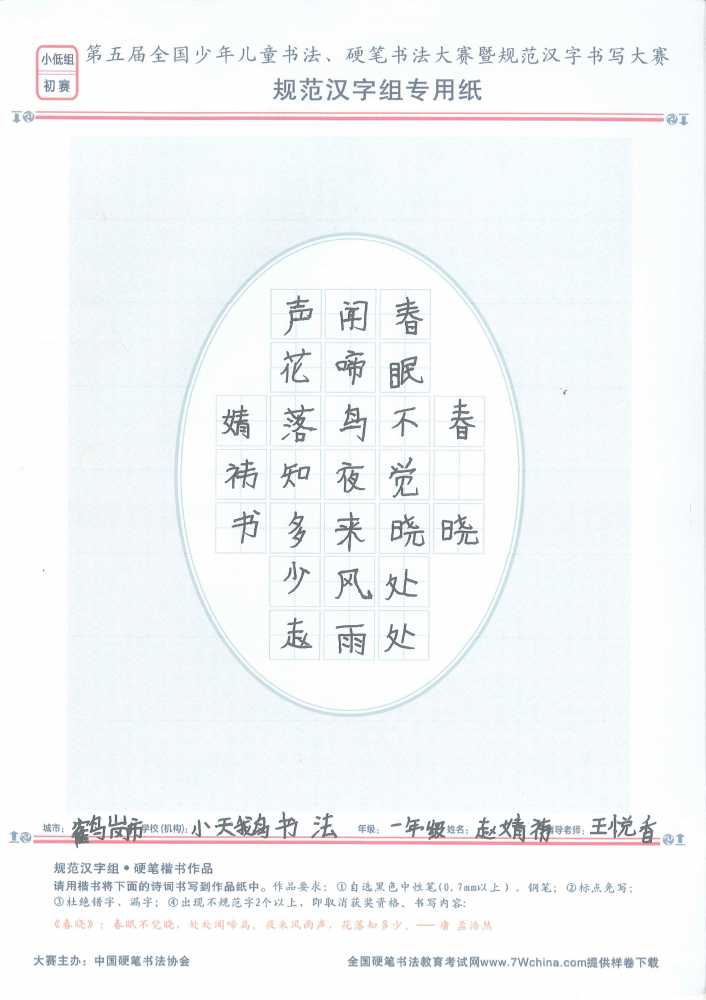 小低组
初赛
第五届全国少年儿童书法、硬笔书法大赛暨规范汉字书写大赛
规范汉字组专用纸
春晓
春眠不觉晓处处
闻啼鸟夜来风雨
声花落知多少赵
婧祎书
城市：鹤岗市 学校(机构)：小天鹅书法 年级：一年级 姓名：赵婧祎 指导老师：王悦香
规范汉字组●硬笔楷书作品
请用楷书将下面的诗词书写到作品纸中。作品要求：①自选黑色中性笔(0.7mm以上)、钢笔；②标点免写；
③杜绝错字、漏字；④出现不规范字2个以上，即取消获奖资格。书写内容：
《春晓》：春眠不觉晓，处处闻啼鸟。夜来风雨声，花落知多少。——唐 孟浩然
大赛主办：中国硬笔书法协会
全国硬笔书法教育考试网www.7Wchina.com提供样卷下载